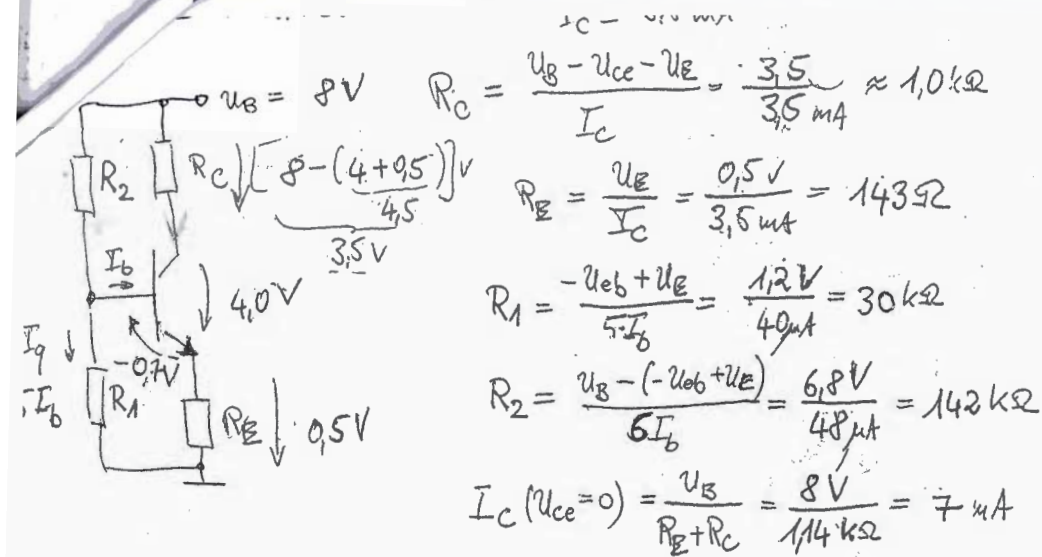 U_B = 8V
R_2
R_C [8-(4+0,5)]V
4,5
3,5V
I_b
4,0V
-0,7V
I_q
R_1
R_E
0,5V
R_C = (U_B - U_ce - U_E) / I_C = 3,5 / 3,5 mA ≈ 1,0 kΩ
R_E = U_E / I_C = 0,5V / 3,5mA = 143Ω
R_1 = (-U_eb + U_E) / 5·I_b = 1,2V / 40µA = 30 kΩ
R_2 = (U_B - (-U_eb + U_E)) / 6I_b = 6,8V / 48µA = 142 kΩ
I_C (U_ce = 0) = U_B / (R_E + R_C) = 8V / 1,14 kΩ = 7 mA